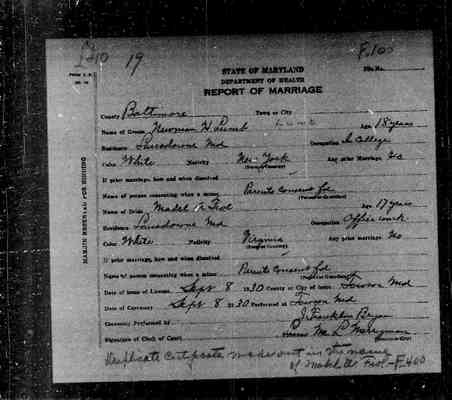 19 F.100
STATE OF MARYLAND
DEPARTMENT OF HEALTH
REPORT OF MARRIAGE
File No.
MARGIN RESERVED FOR BINDING
County Baltimore Town or City
Name of Groom Newman H. Lumb Age 18 years
Residence Lansdowne Md Occupation College
Color White Nativity New York Any prior Marriage No
If prior marriage, how and when dissolved
Name of person consenting when a minor Parents Consent
Name of Bride Mabel Age 17 years
Residence Lansdowne Md Occupation Office work
Color White Nativity Virginia Any prior marriage No
If prior marriage, how and when dissolved
Name of person consenting when a minor Parents Consent
Date of issue of License Sept 8 1930 County or City of issue Towson Md
Date of Ceremony Sept 8 1930 Performed at Towson Md
Ceremony Performed by J. Franklin Bryan
Signature of Clerk of Court
Duplicate Certificate made out in the name
of Mabel